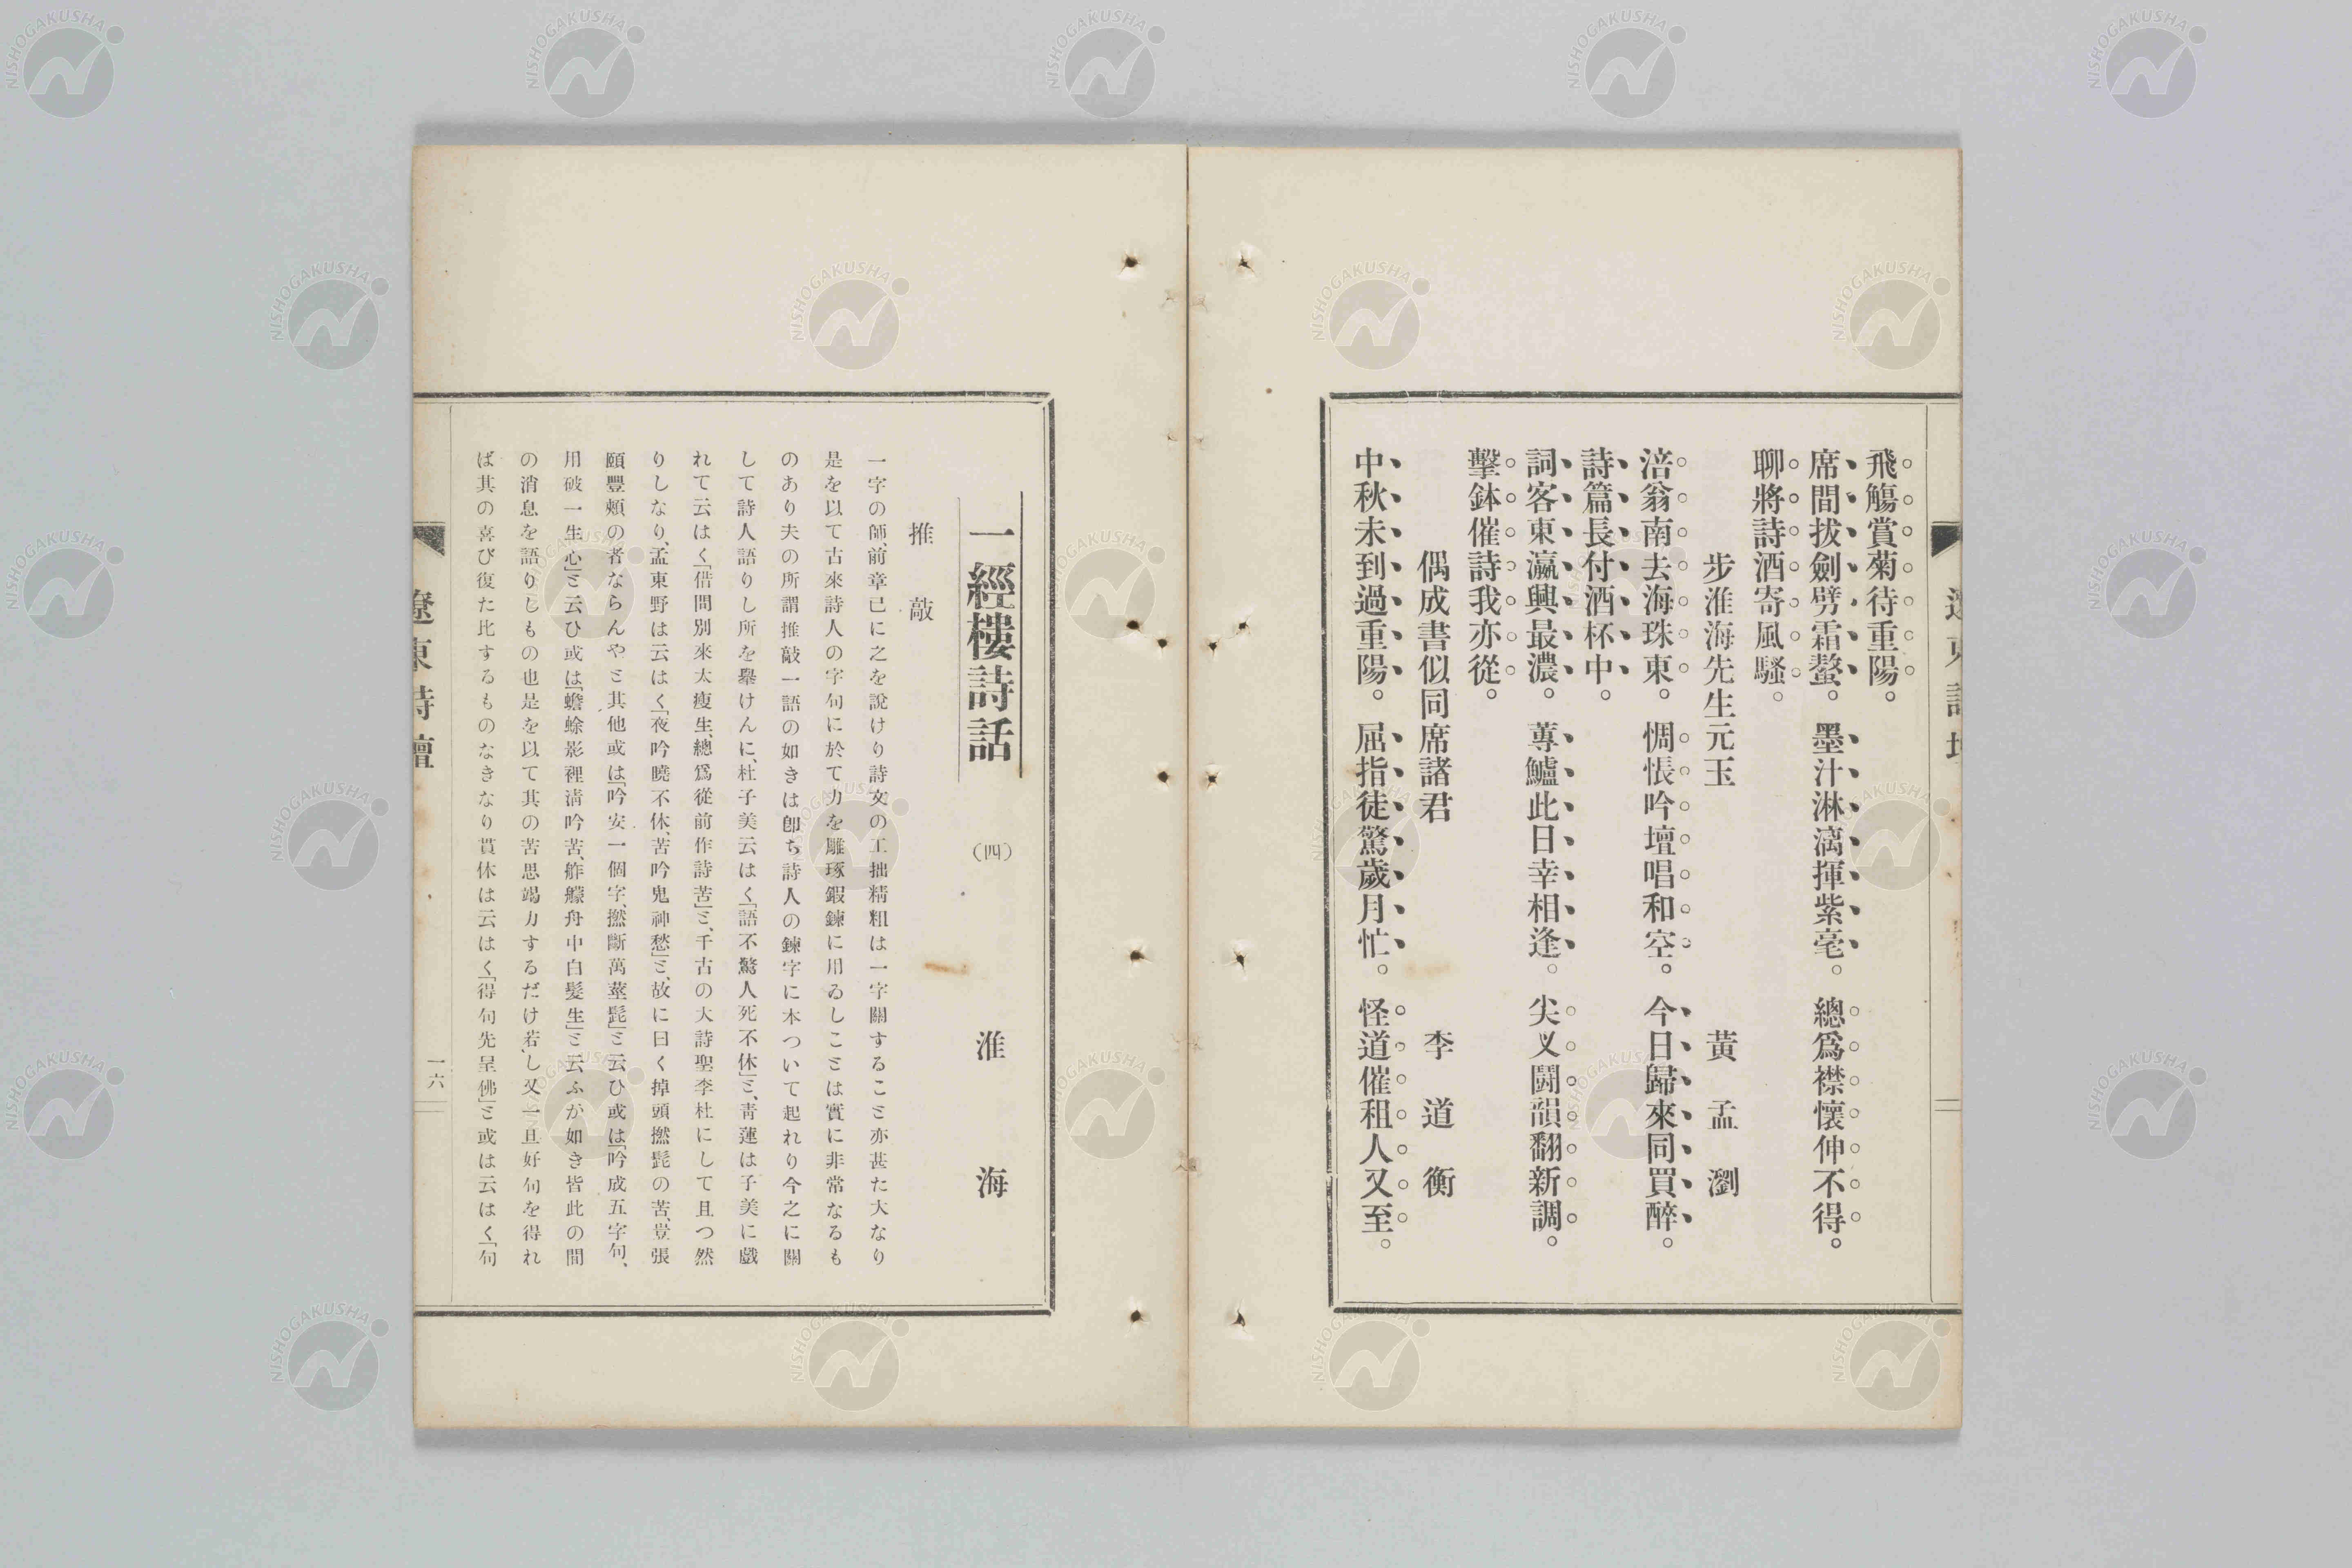 飛觴賞菊待重陽。
席間拔劍劈霜螯。墨汁淋漓揮紫毫。總爲襟懷伸不得。
聊將詩酒寄風騷。
步淮海先生元玉 黃孟瀏
涪翁南去海珠東。惆悵吟壇唱和空。今日歸來同買醉。
詩篇長付酒杯中。
詞客東瀛興最濃。蓴鱸此日幸相逢。尖叉鬪韻翻新調。
擊鉢催詩我亦從。
偶成書似同席諸君 李道衡
中秋未到過重陽。屈指徒驚歲月忙。怪道催租人又至。
一經樓詩話 (四) 淮海
推敲
一字の師、前章已に之を說けり詩文の工拙精粗は一字關するこ〓亦甚た大なり
是を以て古來詩人の字句に於て力を雕琢鍜鍊に用ゐしこ〓は實に非常なるも
のあり夫の所謂推敲一語の如きは卽ち詩人の鍊字に本ついて起れり今之に關
して詩人語りし所を擧けんに、杜子美云はく「語不驚人死不休」〓、靑蓮は子美に戲
れて云はく「借問別來太瘦生、總爲從前作詩苦」〓、千古の大詩聖李杜にして且つ然
りしなり、孟東野は云はく「夜吟曉不休、苦吟鬼神愁」〓、故に曰く掉頭撚髭の苦、豈張
頤豐頰の者ならんや〓其他或は「吟安一個字、撚斷萬莖髭」〓云ひ或は「吟成五字句、
用破一生心」〓云ひ或は「蟾蜍影裡淸吟苦、舴艨舟中白髮生」〓云ふが如き皆此の間
の消息を語りしもの也是を以て其の苦思竭力するだけ若し又一旦好句を得れ
ば其の喜び復た比するものなきなり貫休は云はく「得句先呈佛」〓或は云はく「句
遼東詩壇
一六